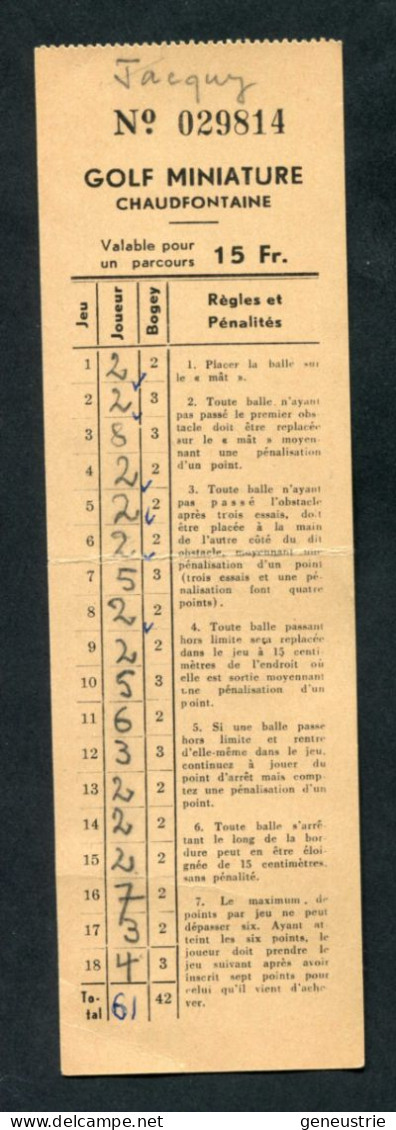 Jacquy
Nº 029814
GOLF MINIATURE
CHAUDFONTAINE
Valable pour
un parcours 15 Fr.
Jeu Joueur Bogey Règles et
Pénalités
1 2 2
2 2 3
3 8 3
4 2 2
5 2 2
6 2 2
7 5 3
8 2 2
9 2 2
10 5 3
11 6 2
12 3 3
13 2 2
14 2 2
15 2 2
16 7 2
17 3 2
18 4 3
To-
tal 61 42
1. Placer la balle sur
le « mât ».
2. Toute balle n'ayant
pas passé le premier obs-
tacle doit être replacée
sur le « mât » moyen-
nant une pénalisation
d'un point.
3. Toute balle n'ayant
pas passé l'obstacle
après trois essais, doit
être placée à la main
de l'autre côté du dit
obstacle, moyennant une
pénalisation d'un point
(trois essais et une pé-
nalisation font quatre
points).
4. Toute balle passant
hors limite sera replacée
dans le jeu à 15 centi-
mètres de l'endroit où
elle est sortie moyennant
une pénalisation d'un
point.
5. Si une balle passe
hors limite et rentre
d'elle-même dans le jeu,
continuez à jouer du
point d'arrêt mais comp-
tez une pénalisation d'un
point.
6. Toute balle s'arrê-
tant le long de la bor-
dure peut en être éloi-
gnée de 15 centimètres,
sans pénalité.
7. Le maximum de
points par jeu ne peut
dépasser six. Ayant at-
teint les six points, le
joueur doit prendre le
jeu suivant après avoir
inscrit sept points pour
celui qu'il vient d'ache-
ver.
geneustrie